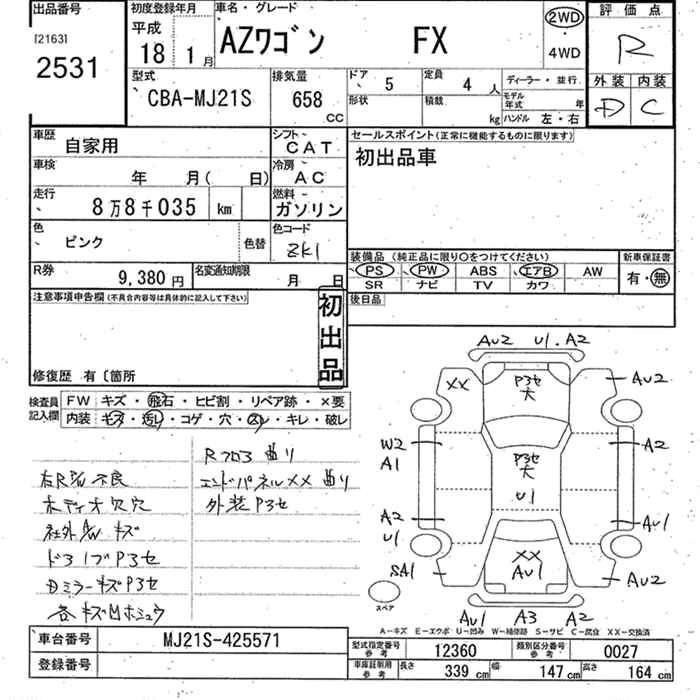 出品番号
[2163]
2531
初度登録年月
平成
18 1月
車名・グレード
AZワゴン FX
2WD
・
4WD
評価点
R
外装 内装
D C
型式
CBA-MJ21S
排気量
658
CC
ドア
5
形状
定員
4 人
積載
kg
ディーラー・並行
モデル年式 年
ハンドル 左・右
車歴
自家用
シフト
CAT
車検
年 月( 日)
冷房
AC
走行
8万8千035 km
燃料
ガソリン
色
ピンク
色替
色コード
ZK1
R券
9,380円
名変通知期限
月 日
セールスポイント(正常に機能するものに限ります)
初出品車
装備品 (純正品に限り○をつけてください)
PS PW ABS エアB AW
SR ナビ TV カワ
新車保証書
有・無
後日品
注意事項申告欄(不具合内容等は具体的に記入して下さい)
初出品
修復歴 有〔箇所
検査員記入欄
FW キズ・飛石・ヒビ割・リペア跡・×要
内装 キズ・汚レ・コゲ・穴・スレ・キレ・破レ
Rフロア曲リ
エンドパネルXX曲リ
外装P3セ
右R外不良
オーディオ穴穴
社外AWキズ
ドアノブP3セ
DミラーキズP3セ
各キズ凹ホシュウ
AU2 U1.A2
XX
P3セ
大
AU2
W2
A1
P3セ
大
U1
A2
A2
U1
AU1
SA1
XX
AU1
AU2
スペア
AU1 A3 A2
A-キズ E-エクボ U-凹み W-補修跡 S-サビ C-腐食 XX-交換済
車台番号
MJ21S-425571
登録番号
型式指定番号
参考
12360
類別区分番号
参考
0027
車庫証明用
参考
長さ 339 cm 幅 147 cm 高さ 164 cm